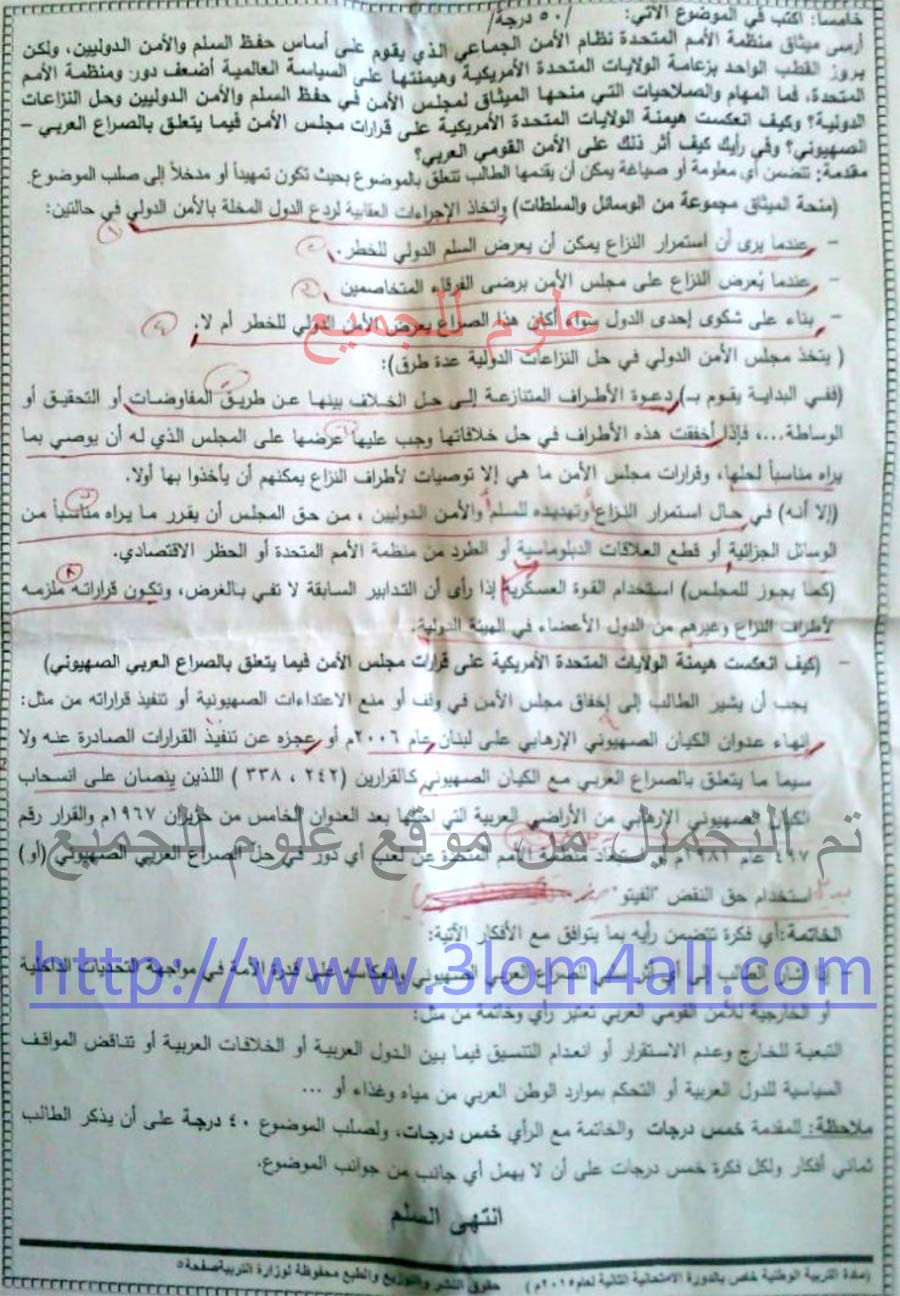 خامسا: اكتب في الموضوع الآتي: /٥٠ درجة/
أرسى ميثاق منظمة الأمم المتحدة نظام الأمن الجماعي الذي يقوم على أساس حفظ السلم والأمن الدوليين، ولكن
بروز القطب الواحد بزعامة الولايات المتحدة الأمريكية وهيمنتها على السياسة العالمية أضعف دور ومنظمة الأمم
المتحدة، فما المهام والصلاحيات التي منحها الميثاق لمجلس الأمن في حفظ السلم والأمن الدوليين وحل النزاعات
الدولية؟ وكيف انعكست هيمنة الولايات المتحدة الأمريكية على قرارات مجلس الأمن فيما يتعلق بالصراع العربي –
الصهيوني؟ وفي رأيك كيف أثر ذلك على الأمن القومي العربي؟
مقدمة: تتضمن أي معلومة أو صياغة يمكن أن يقدمها الطالب تتعلق بالموضوع بحيث تكون تمهيداً أو مدخلاً إلى صلب الموضوع.
(منحة الميثاق مجموعة من الوسائل والسلطات) واتخاذ الإجراءات العقابية لردع الدول المخلة بالأمن الدولي في حالتين:
– عندما يرى أن استمرار النزاع يمكن أن يعرض السلم الدولي للخطر.
– عندما يُعرض النزاع على مجلس الأمن برضى الفرقاء المتخاصمين
– بناء على شكوى إحدى الدول سواء أكان هذا الصراع يعرض الأمن الدولي للخطر أم لا.
علوم للجميع
( يتخذ مجلس الأمن الدولي في حل النزاعات الدولية عدة طرق):
(ففي البداية يقوم بـ) دعوة الأطراف المتنازعة إلى حل الخلاف بينها عن طريق المفاوضات أو التحقيق أو
الوساطة...، فإذا أخفقت هذه الأطراف في حل خلافاتها وجب عليها عرضها على المجلس الذي له أن يوصي بما
يراه مناسباً لحلها، وقرارات مجلس الأمن ما هي إلا توصيات لأطراف النزاع يمكنهم أن يأخذوا بها أولا.
(إلا أنه) في حال استمرار النزاع وتهديده للسلم والأمن الدوليين ، من حق المجلس أن يقرر ما يراه مناسباً من
الوسائل الجزائية أو قطع العلاقات الدبلوماسية أو الطرد من منظمة الأمم المتحدة أو الحظر الاقتصادي.
(كما يجوز للمجلس) استخدام القوة العسكرية إذا رأى أن التدابير السابقة لا تفي بالغرض، وتكون قراراته ملزمه
لأطراف النزاع وغيرهم من الدول الأعضاء في الهيئة الدولية.
– (كيف انعكست هيمنة الولايات المتحدة الأمريكية على قرارات مجلس الأمن فيما يتعلق بالصراع العربي الصهيوني)
يجب أن يشير الطالب إلى إخفاق مجلس الأمن في وقف أو منع الاعتداءات الصهيونية أو تنفيذ قراراته من مثل:
إنهاء عدوان الكيان الصهيوني الإرهابي على لبنان عام ٢٠٠٦م أو عجزه عن تنفيذ القرارات الصادرة عنه ولا
سيما ما يتعلق بالصراع العربي مع الكيان الصهيوني كالقرارين (٢٤٢ ، ٣٣٨ ) اللذين ينصان على انسحاب
الكيان الصهيوني الإرهابي من الأراضي العربية التي احتلها بعد العدوان الخامس من حزيران ١٩٦٧م والقرار رقم
تم التحميل من موقع علوم للجميع
٤٩٧ عام ١٩٨١م أو استبعاد منظمة الأمم المتحدة عن لعب أي دور في حل الصراع العربي الصهيوني (أو)
استخدام حق النقض "الفيتو"
الخاتمة: أي فكرة تتضمن رأيه بما يتوافق مع الأفكار الآتية:
– إذا أشار الطالب إلى أي أثر سلبي للصراع العربي الصهيوني وانعكاسه على قدرة الأمة في مواجهة التحديات الداخلية
http://www.3lom4all.com
أو الخارجية للأمن القومي العربي تعتبر رأي وخاتمة من مثل:
التبعية للخارج وعدم الاستقرار أو انعدام التنسيق فيما بين الدول العربية أو الخلافات العربية أو تناقض المواقف
السياسية للدول العربية أو التحكم بموارد الوطن العربي من مياه وغذاء أو ...
ملاحظة: للمقدمة خمس درجات والخاتمة مع الرأي خمس درجات، ولصلب الموضوع ٤٠ درجة على أن يذكر الطالب
ثماني أفكار ولكل فكرة خمس درجات على أن لا يهمل أي جانب من جوانب الموضوع.
انتهى السلم
(مادة التربية الوطنية خاص بالدورة الامتحانية الثانية لعام ٢٠١٥م) حقوق النشر والتوزيع والطبع محفوظة لوزارة التربية صفحة ٥